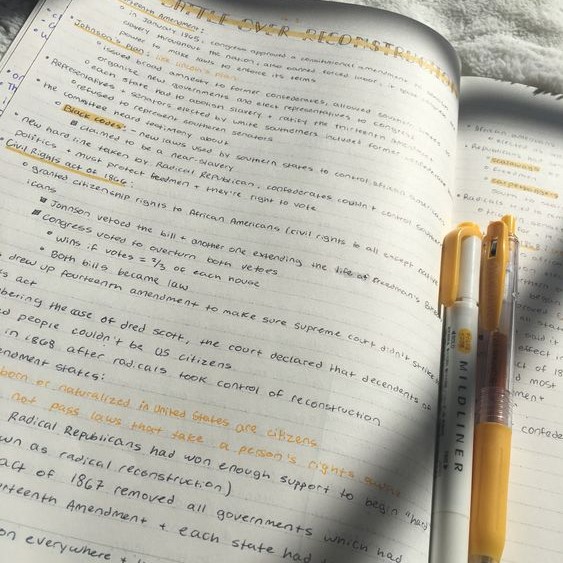 BATTLE OVER RECONSTRUCTION
Thirteenth Amendment:
in January 1865, congress approved a constitutional amendment to
slavery throughout the nation, also banned forced labor, it
power to make laws to enforce its terms
Johnson's Plan: like Lincoln's plan
issued broad amnesty to former confederates, allowed
organize new governments and elect representatives to congress
each state had to abolish slavery + ratify the thirteenth amendment
Representatives + senators elected by white southerners included former
refused to represent southern senators
the committee heard testimony about
Black codes: - new laws used by southern states to control
claimed to be a near-slavery
new hard line taken by Radical Republican, confederates couldn't control
politics + must protect freedmen + they're right to vote
Civil Rights act of 1866:
granted citizenship rights to African Americans (civil rights to all except native
icans
Johnson vetoed the bill + another one extending the life of Freedman's
Congress voted to overturn both vetoes
Wins if votes = 2/3 of each house
Both bills became law
drew up fourteenth amendment to make sure supreme court didn't strike
s act
bering the case of dred scott, the court declared that decendents of
d people couldn't be US citizens
in 1868 after radicals took control of reconstruction
endment states:
born or naturalized in United States are citizens
not pass laws that take a person's rights
Radical Republicans had won enough support to begin "hard
wn as radical reconstruction)
act of 1867 removed all governments which had
rteenth Amendment + each state had
on everywhere +
African
Republicans
scalawags
carpetbaggers
Radicals
for
said it
effect
ct of 18
d most
ment
confede
MILDLINER